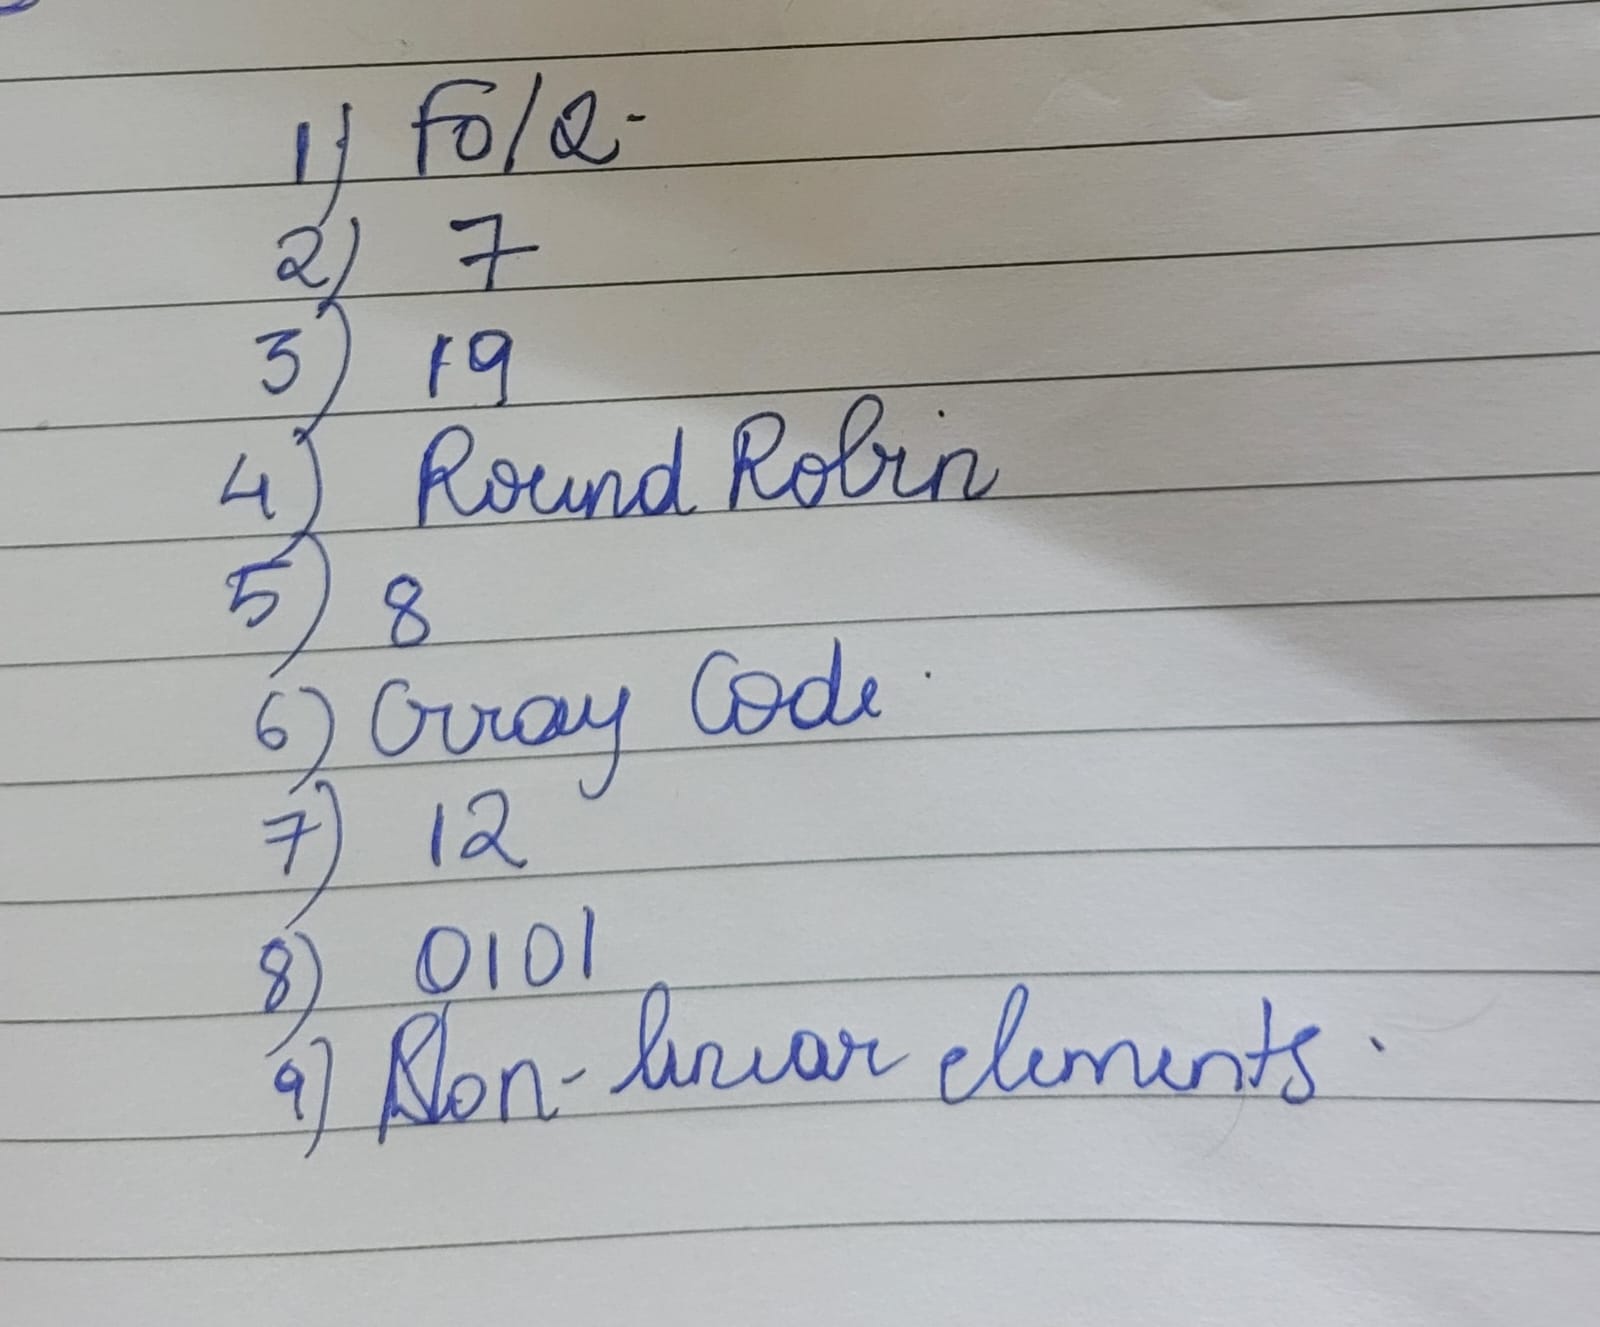 1) fo/2-
2) 7
3) 19
4) Round Robin
5) 8
6) Array Code.
7) 12
8) 0101
9) Non-linear elements.